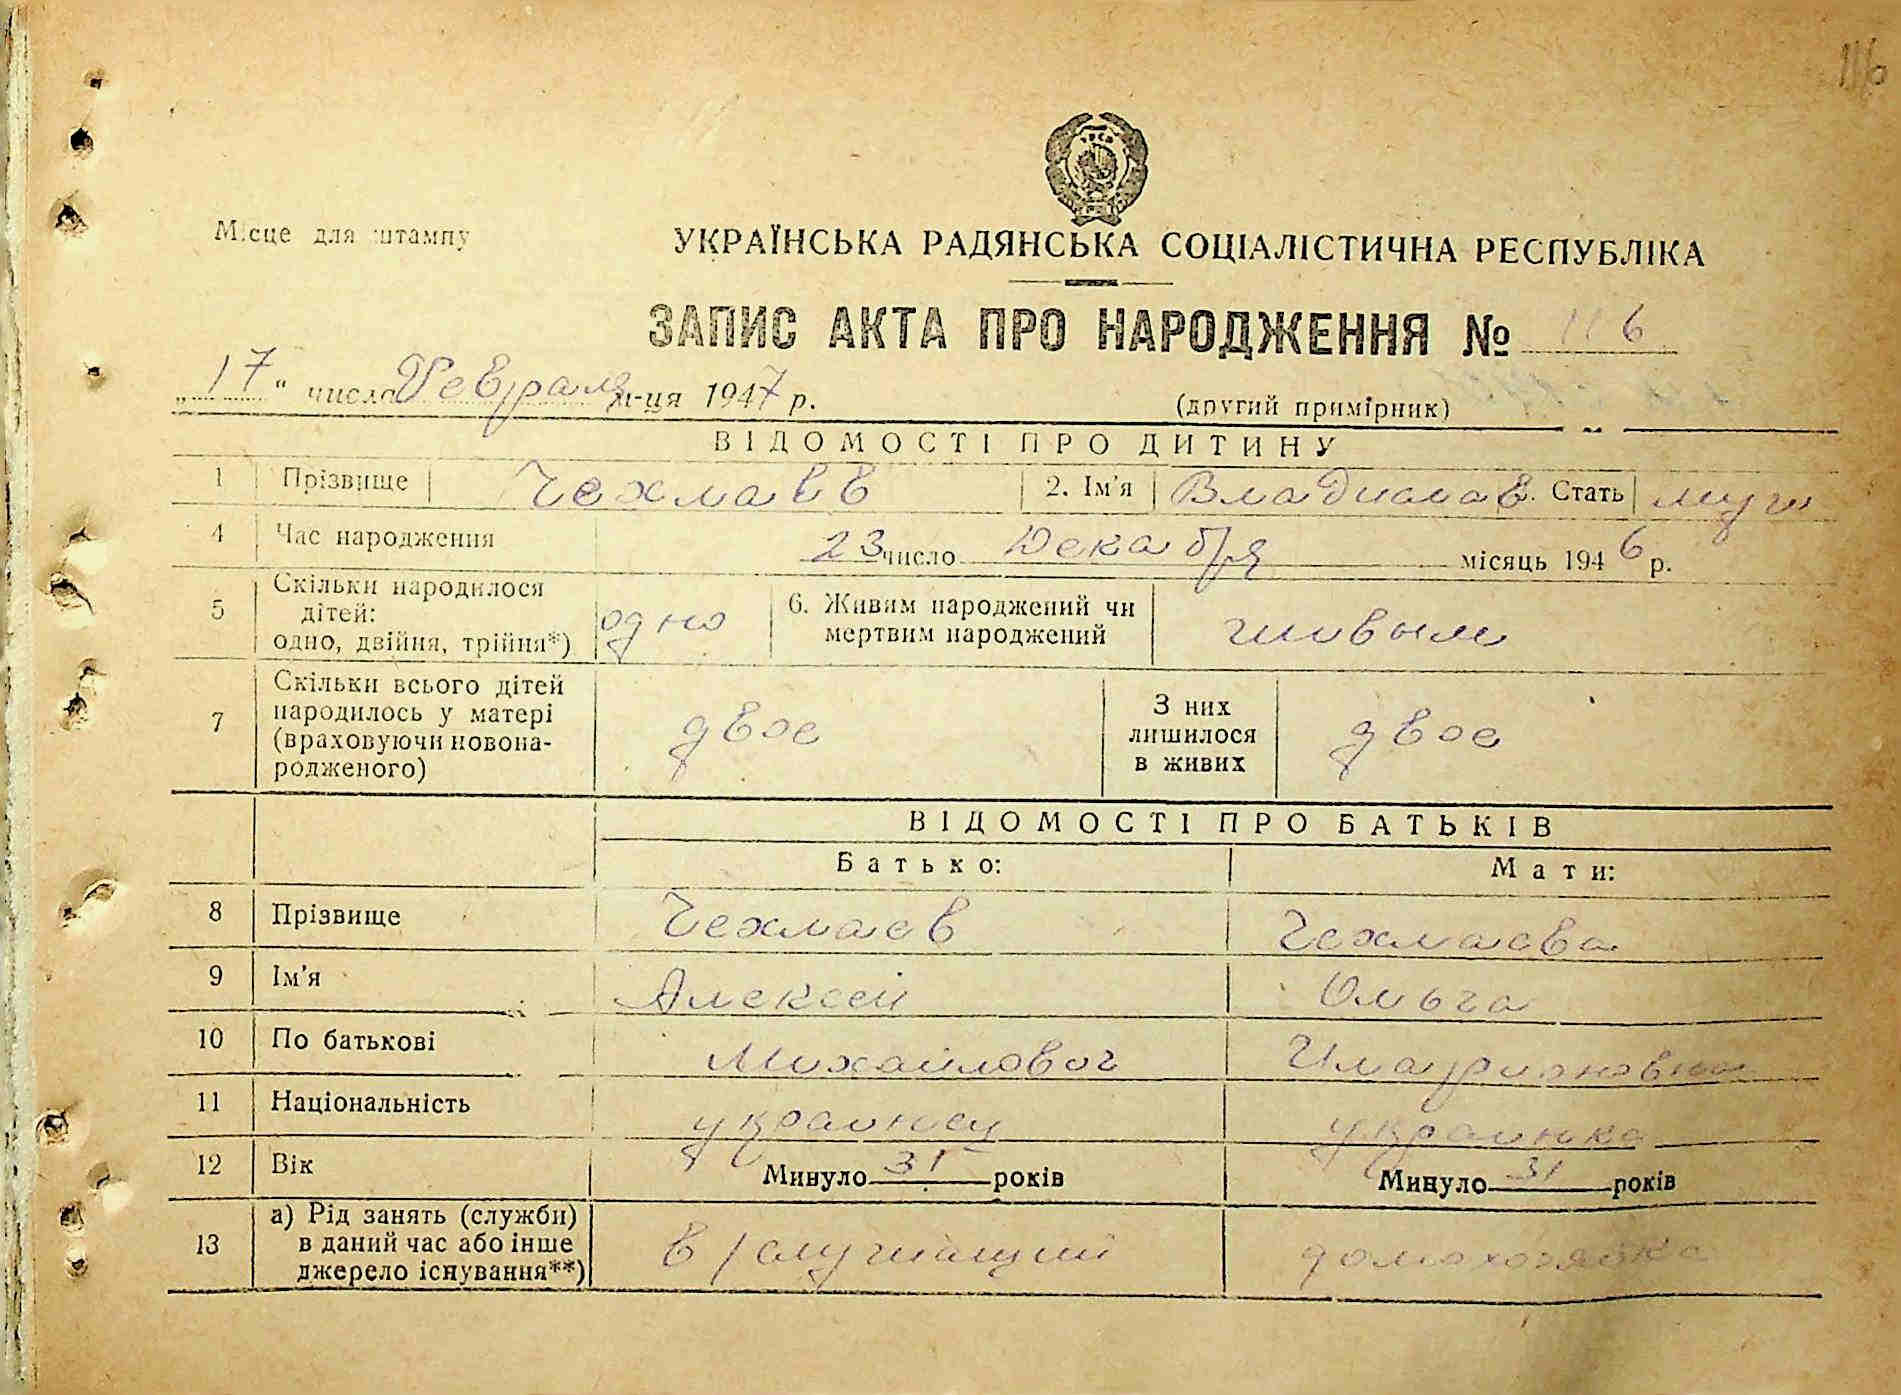 116
Місце для штампу
УКРАЇНСЬКА РАДЯНСЬКА СОЦІАЛІСТИЧНА РЕСПУБЛІКА
ЗАПИС АКТА ПРО НАРОДЖЕННЯ № 116
„17“ числа Февраля м-ця 1947 р.
(другий примірник)
ВІДОМОСТІ ПРО ДИТИНУ
1 Прізвище Чехмаев 2. Ім’я Владислав. Стать муж
4 Час народження 23 число Декабря місяць 1946 р.
5 Скільки народилося дітей: одно, двійня, трійня*) одно 6. Живим народжений чи мертвим народжений живым
7 Скільки всього дітей народилось у матері (враховуючи новонародженого) двое З них лишилося в живих двое
ВІДОМОСТІ ПРО БАТЬКІВ
Батько: Мати:
8 Прізвище Чехмаев Чехмаева
9 Ім’я Алексей Ольга
10 По батькові Михайлович
11 Національність украинец украинка
12 Вік Минуло 31 років Минуло 31 років
13 а) Рід занять (служби) в даний час або інше джерело існування**) в/служащий домохозяйка